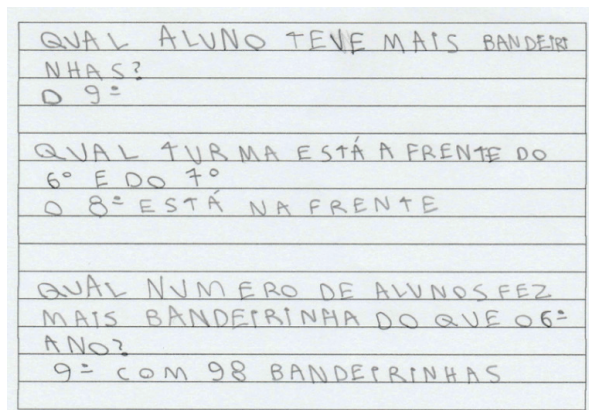 QUAL ALUNO TEVE MAIS BANDEIRI
NHAS?
O 9º
QUAL TURMA ESTÁ A FRENTE DO
6º E DO 7º
O 8º ESTÁ NA FRENTE
QUAL NUMERO DE ALUNOS FEZ
MAIS BANDEIRINHA DO QUE O 6º
ANO?
9º COM 98 BANDEIRINHAS